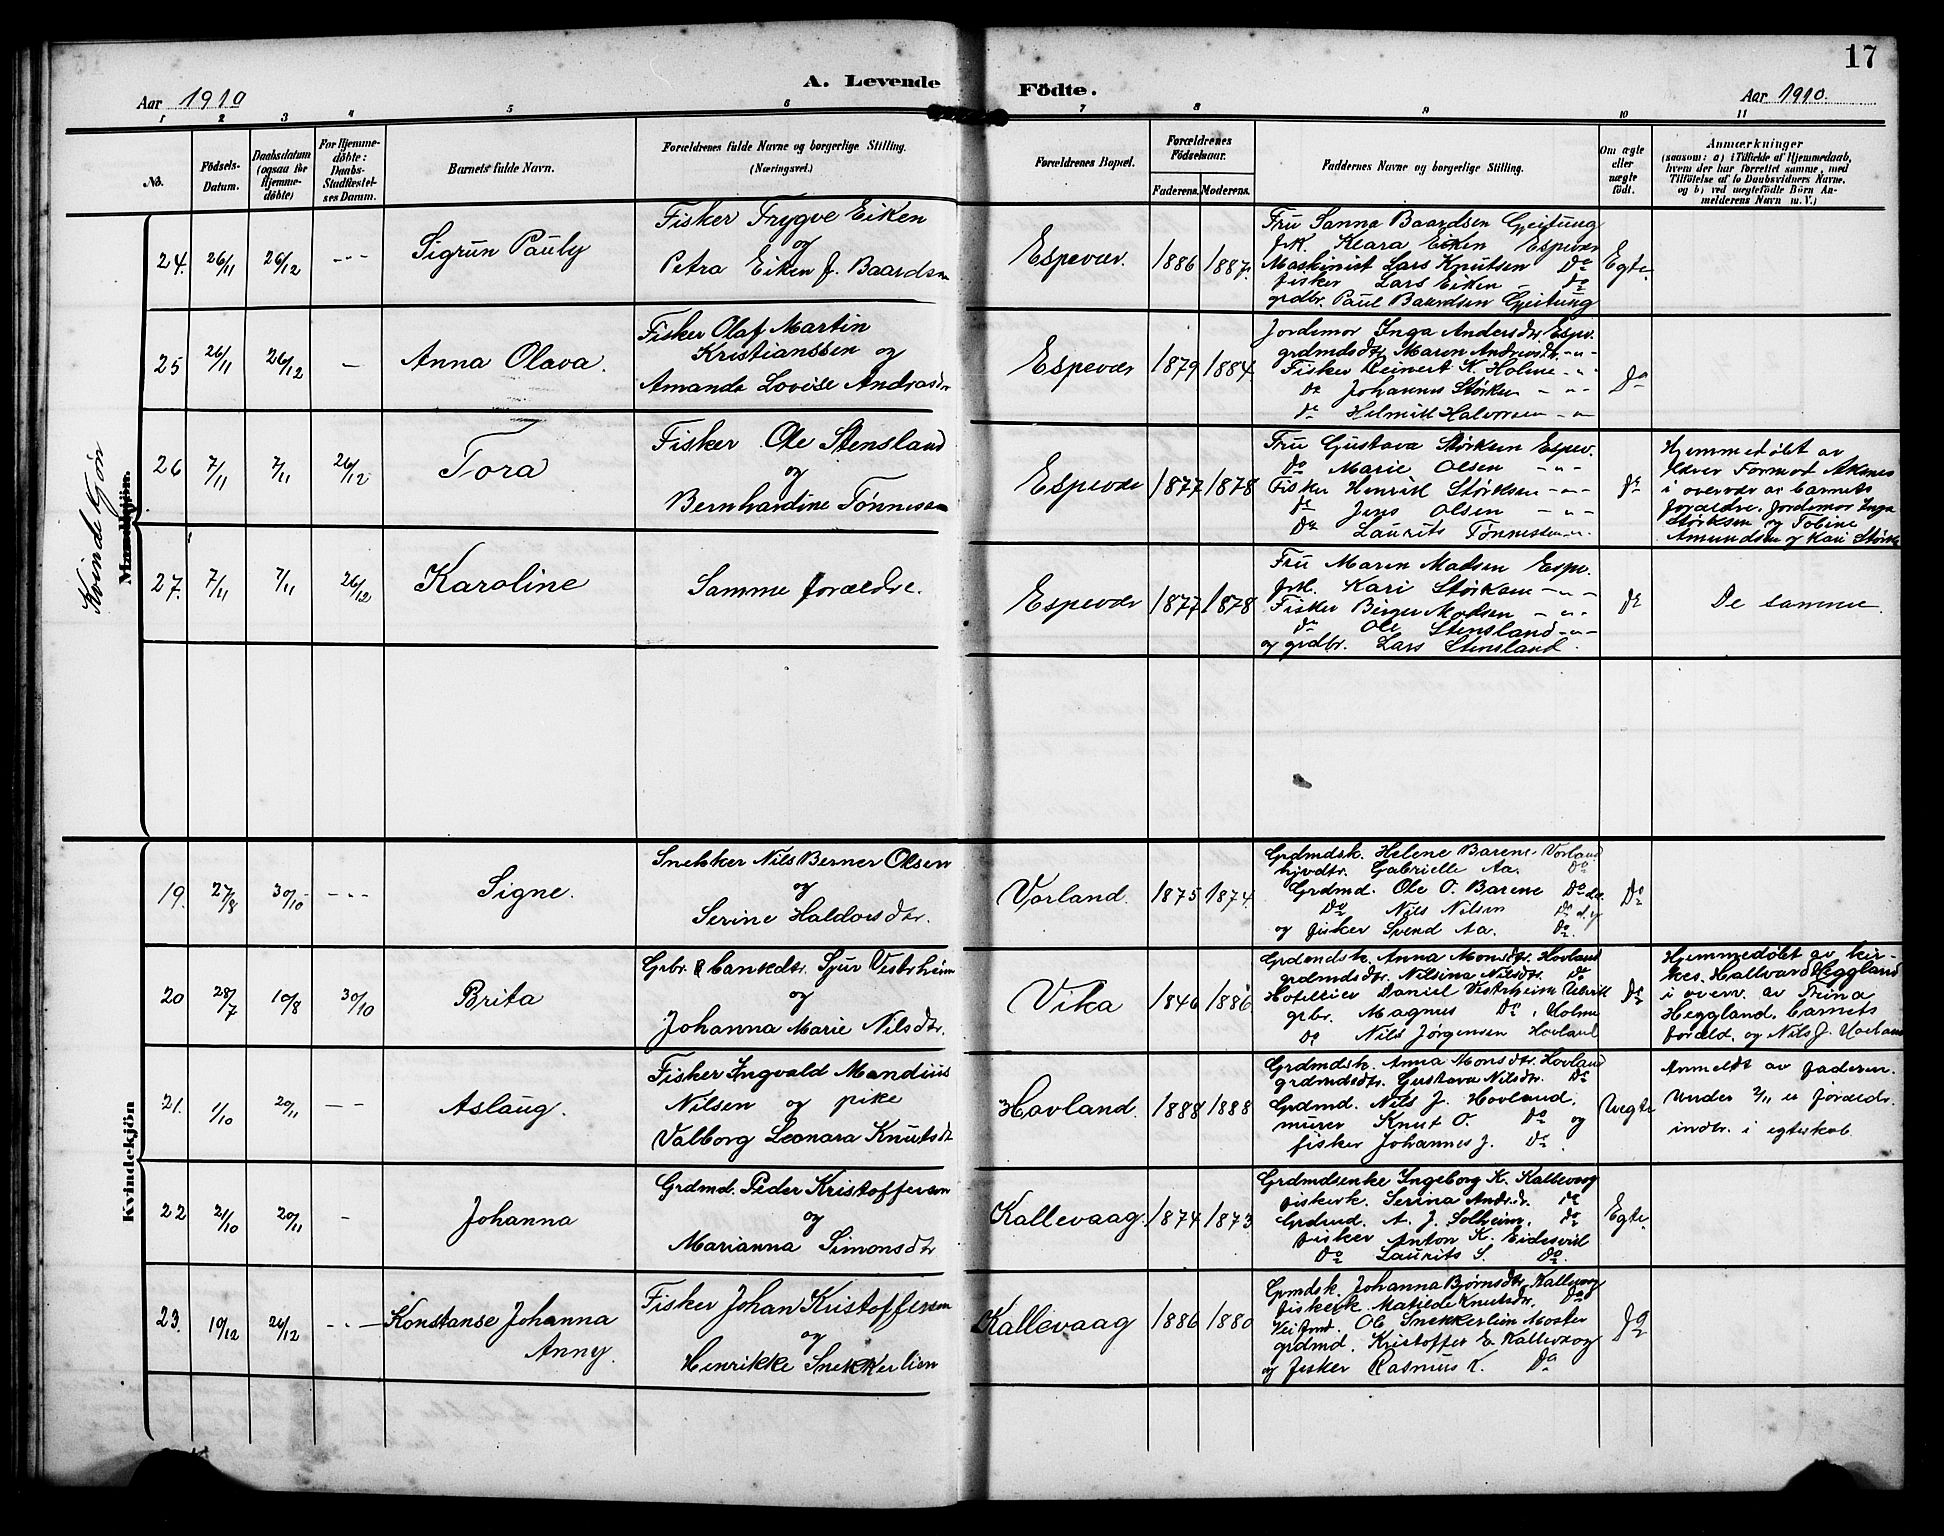 17
A. Levende Födte.
Aar 1910
Aar 1910.
1 2 3 4 5 6 7 8 9 10 11
No.
Födsels-
Datum.
Daabsdatum
(ogsaa for
Hjemme-
döbte)
For Hjemme-
döbte:
Daabs-
Stadfæstel-
ses Datum.
Barnets fulde Navn.
Forældrenes fulde Navne og borgerlige Stilling.
(Næringsvei.)
Forældrenes Bopæl.
Forældrenes
Födselsaar.
Faderens. Moderens.
Faddernes Navne og borgerlige Stilling.
Om ægte
eller
uægte
födt.
Anmærkninger
(saasom: a) i Tilfælde af Hjemmedaab,
hvem der har forrettet samme, med
Tilföielse af to Daabsvidners Navne,
og b) ved uægtefödte Börn An-
melderens Navn m. V.)
Kvindekjön
Mandkjön.
24. 26/11 26/12 - - -
Sigrun Pauly
Fisker Trygve Eiken
og
Petra Eiken f. Baardsen
Espevær. 1886 1887.
Fru Sanna Baardsen Gjeitung
frk. Klara Eiken Espevær
Maskinist Lars Knutsen Do
fisker Lars Eiken - Do
grdbr. Paul Baardsen Gjeitung
Egte
25 26/11 26/12 -
Anna Olava.
Fisker Olaf Martin
Kristianssen og
Amanda Lovise Andrasdtr
Espevær 1879 1884.
Jordemor Inga Andersdtr Espev.
grdmdsdtr. Maren Andreasdtr. -"-
Fisker Reinert K. Holme -"-
Do Johannes Størksen -"-
Do Helmik Halvorsen -"-
Do
26 7/11 7/11 26/12
Tora
Fisker Ole Stensland
og
Bernhardine Tønnesen
Espevær 1877 1878
Fru Gustava Størksen Espev.
Do Marie Olsen -"-
Fisker Henrik Størksen -"-
Do Jens Olsen -"-
Do Laurits Tønnessen -"-
Do
Hjemmedøbt av
lærer Formod Aknes
i overvær av barnets
forældre, jordemor Inga
Størksen og Tobine
Amundsen og Kari Størks
27. 7/11 7/11 26/12
Karoline
Samme forældre.
Espevær 1877 1878
Fru Maren Madsen Espv.
frk. Kari Størksen -"-
Fisker Birger Madsen -"-
Do Ole Stensland -"-
og grdbr. Lars Stensland.
Do
De samme.
Kvindekjön
19. 27/8 30/10 - - -
Signe.
Snekker Nils Berner Olsen
og
Serine Haldorsdtr.
Vorland. 1875 1874.
Grdmdsk. Helene Barene Vorland
hjvdtr. Gabrielle Aa. Do
Grdmd. Ole O. Barene Do
Do Nils Nilsen Do d.y.
og fisker Svend Aa. Do
Do
20 28/7 10/8 30/10
Brita
Grbr. & bankedtr. Sjur Vestrheim
og
Johanna Marie Nilsdtr.
Vika 1846 1886
Grdmdsk. Anna Monsdtr. Hovland
grdmdsdtr. Nilsina Nilsdtr. Do
Hotelleier Daniel Vestrheim
grbr. Magnus Do, Holme
Do Nils Jørgensen Hovland
Do
Hjemmedøbt av kir-
kes. Hallvard Heggland
i overv. av Trina
Heggland, barnets
foræld. og Nils J. Hovland
21. 1/10 20/11 - -
Aslaug.
Fisker Ingvald Mandius
Nilsen og pike
Valborg Leonara Knutsdtr
Hovland. 1888 1888
Grdmdsk. Anna Monsdtr. Hovland
grdmdsdtr. Gustava Nilsdtr. Do
Grdmd. Nils J. Hovland,
murer Knut O. Do og
fisker Johannes J. Do
Uegte
Anmeldt av faderen.
Under 2/11 er forældr.
indtr. i egteskab
22 21/10 20/11 -
Johanna
Grdmd. Peder Kristoffersen
og
Marianna Simonsdtr
Kallevaag. 1874 1873
Grdmdsenke Ingeborg K. Kallevaag
fiskerk. Serina Andr.d. Do
Grdmd. A. J. Solheim. Do
fisker Anton K. Eidesvik
Do Laurits S. Do.
Egte.
23. 19/12 26/12 - - -
Konstanse Johanna
Anny.
Fisker Johan Kristoffersen
og
Henrikke Snekkerlien
Kallevaag 1886 1880
Grmdsk. Johanna Bjørnsdtr. Kallevaag
fiskerk. Matilde Knutsdtr. Do
Veifmd. Ole Snekkerlien Moster
grdmd. Kristoffer E. Kallevaag
og fisker Rasmus K. Do
Do